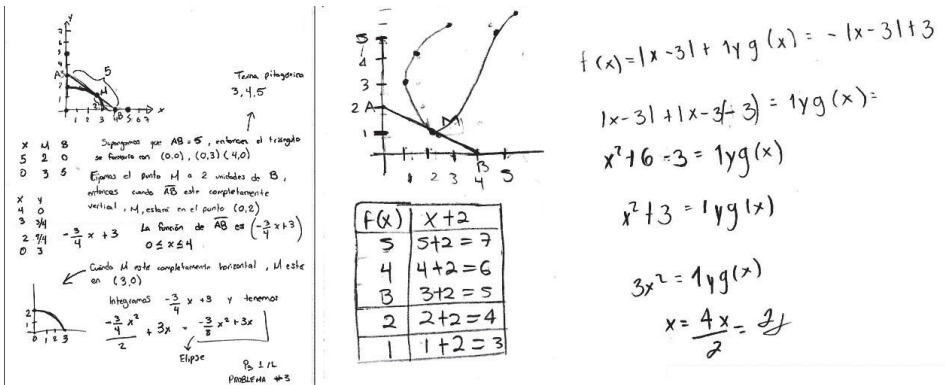 y
7
6
5
4
A3
2
1
5
M
1 2 3 4B 5 6 7 x
Terna pitagórica
3, 4, 5
x M B
5 2 0
0 3 5
Supongamos que AB = 5, entonces el triángulo
se formaría con (0,0), (0,3) (4,0)
Fijamos el punto M a 2 unidades de B,
entonces cuando AB este completamente
vertical, M, estará en el punto (0,2)
x y
4 0
3 3/4
2 9/4
0 3
-3/4 x + 3
La función de AB es (-3/4 x + 3)
0 ≤ x ≤ 4
Cuándo M este completamente horizontal, M este
en (3,0)
2
1
0 1 2 3
Integramos -3/4 x + 3 y tenemos
-3/4 x²/2 + 3x = -3/8 x² + 3x
Elipse
Pg 1/2
PROBLEMA #3
5
4
3
2 A
1
M
B
1 2 3 4 5
f(x) x+2
5 5+2=7
4 4+2=6
3 3+2=5
2 2+2=4
1 1+2=3
f(x)=|x-3|+1 y g(x)=-|x-3|+3
|x-3|+|x-3(-3)=1 y g(x)=
x²+6-3=1 y g(x)
x²+3=1 y g(x)
3x²=1 y g(x)
x=4x/2=2